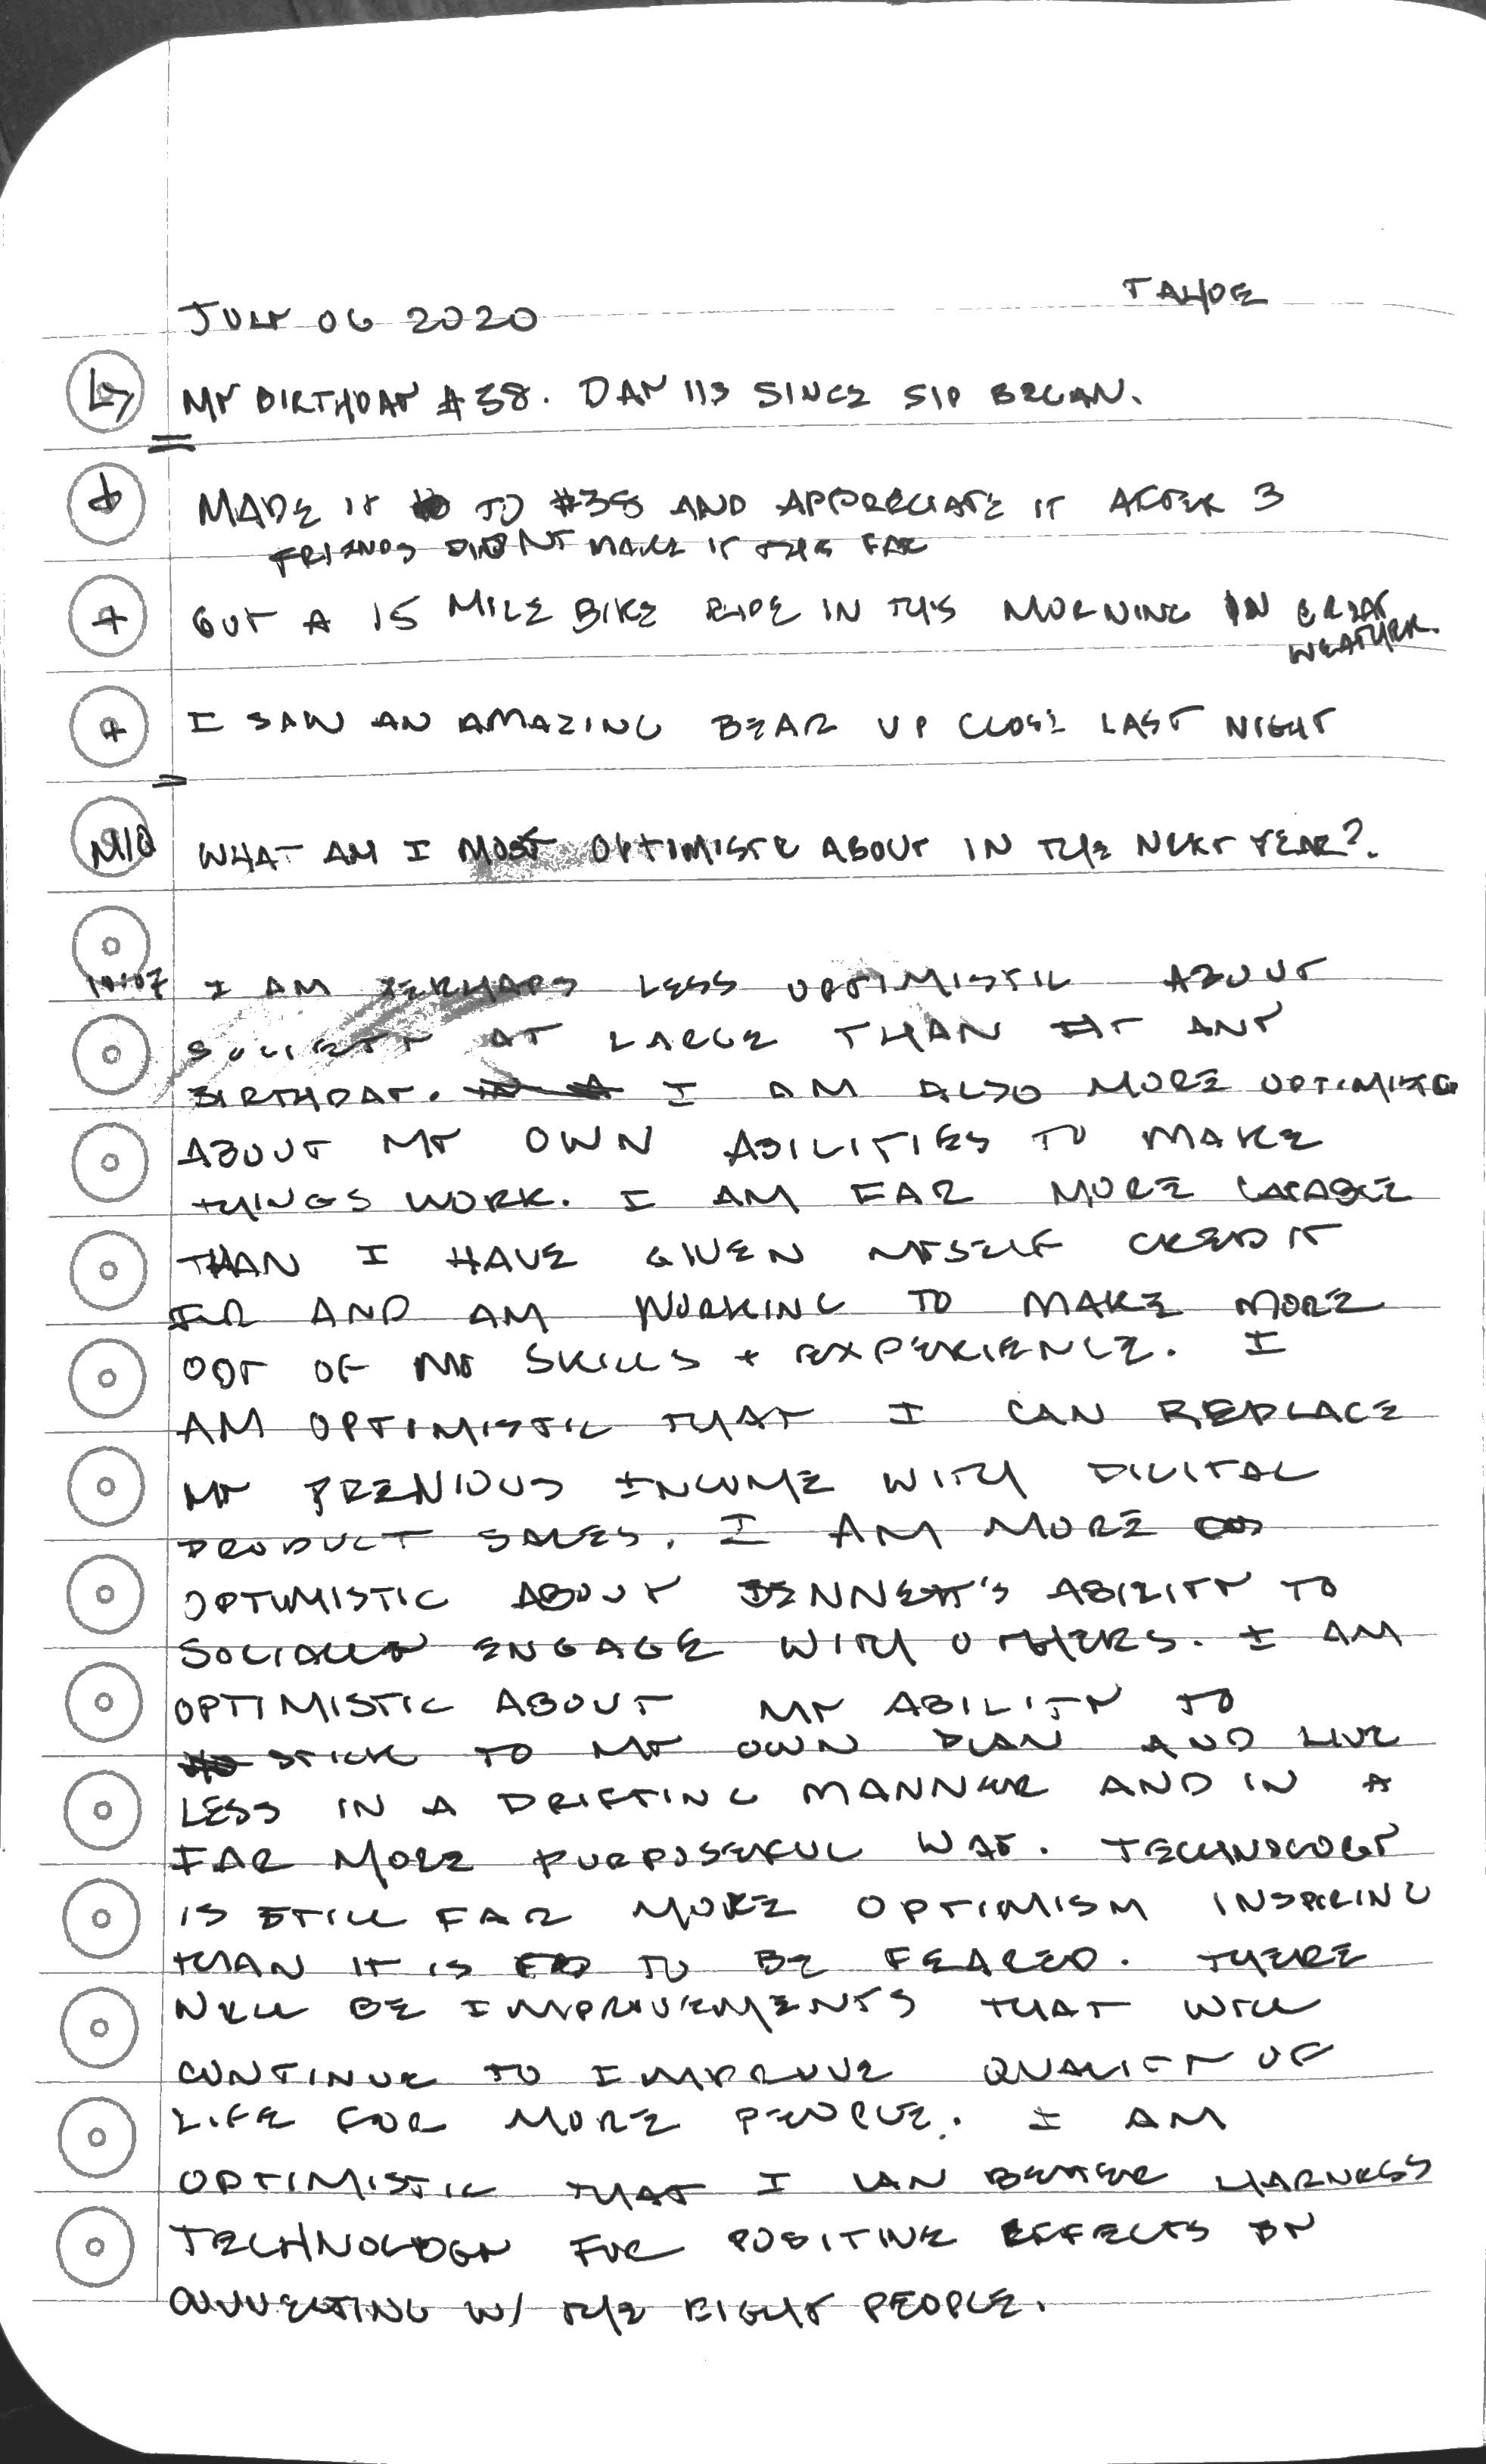 TAHOE
JULY 06 2020
MY BIRTHDAY #38. DAY 113 SINCE SIP BEGAN.
MADE IT TO #38 AND APPRECIATE IT AFTER 3
FRIENDS DIDNT MAKE IT THIS FAR
GOT A 15 MILE BIKE RIDE IN THIS MORNING IN GREAT
WEATHER.
I SAW AN AMAZING BEAR UP CLOSE LAST NIGHT
M/Q WHAT AM I MOST OPTIMISTIC ABOUT IN THE NEXT YEAR?.
10:07 I AM PERHAPS LESS OPTIMISTIC ABOUT
SOCIETY AT LARGE THAN AT ANY
BIRTHDAY. I AM ALSO MORE OPTIMISTIC
ABOUT MY OWN ABILITIES TO MAKE
THINGS WORK. I AM FAR MORE CAPABLE
THAN I HAVE GIVEN MYSELF CREDIT
FOR AND AM WORKING TO MAKE MORE
OUT OF MY SKILLS + EXPERIENCE. I
AM OPTIMISTIC THAT I CAN REPLACE
MY PREVIOUS INCOME WITH DIGITAL
PRODUCT SALES. I AM MORE
OPTIMISTIC ABOUT BENNETT'S ABILITY TO
SOCIALLY ENGAGE WITH OTHERS. I AM
OPTIMISTIC ABOUT MY ABILITY TO
STICK TO MY OWN PLAN AND LIVE
LESS IN A DRIFTING MANNER AND IN A
FAR MORE PURPOSEFUL WAY. TECHNOLOGY
IS STILL FAR MORE OPTIMISM INSPIRING
THAN IT IS TO BE FEARED. THERE
WILL BE IMPROVEMENTS THAT WILL
CONTINUE TO IMPROVE QUALITY OF
LIFE FOR MORE PEOPLE. I AM
OPTIMISTIC THAT I CAN BETTER HARNESS
TECHNOLOGY FOR POSITIVE EFFECTS BY
CONNECTING W/ THE RIGHT PEOPLE.